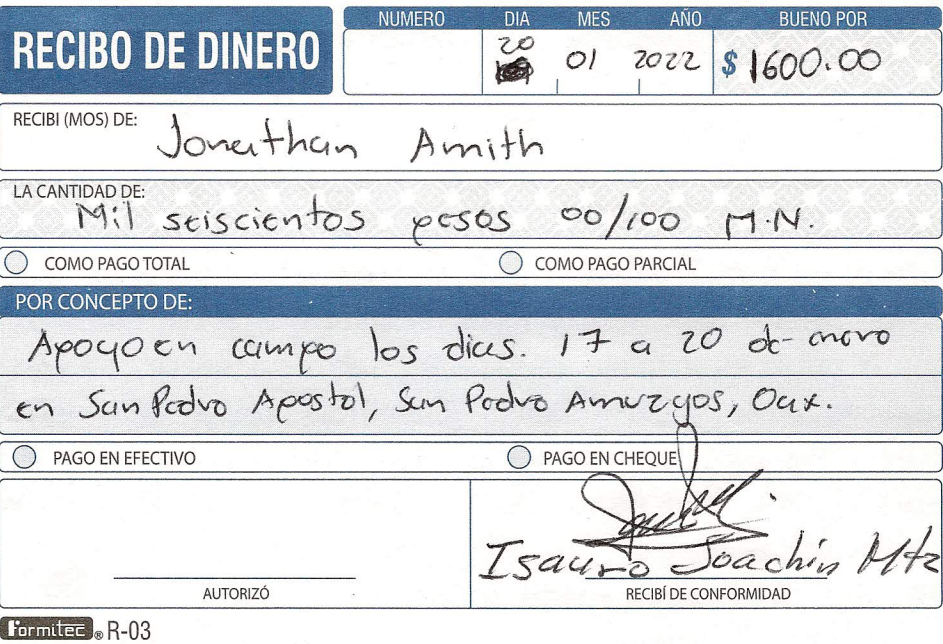 RECIBO DE DINERO
NUMERO DIA MES AÑO BUENO POR
20 01 2022 $ 1600.00
RECIBI (MOS) DE: Jonathan Amith
LA CANTIDAD DE:
Mil seiscientos pesos 00/100 M.N.
COMO PAGO TOTAL COMO PAGO PARCIAL
POR CONCEPTO DE:
Apoyo en campo los dias. 17 a 20 de enero
en San Pedro Apostol, San Pedro Amuzgos, Oax.
PAGO EN EFECTIVO PAGO EN CHEQUE
Isauro Joachin Mtz
AUTORIZÓ RECIBÍ DE CONFORMIDAD
Formitec ® R-03